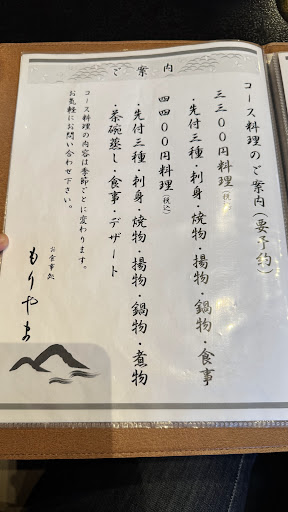 ご案内
コース料理のご案内(要予約)
三三〇〇円料理(税込)
・先付三種・刺身・焼物・揚物・鍋物・食事
四四〇〇円料理(税込)
・先付三種・刺身・焼物・揚物・鍋物・煮物
・茶碗蒸し・食事・デザート
コース料理の内容は季節ごとに変わります。
お気軽にお問い合わせ下さい。
お食事処
もりやま